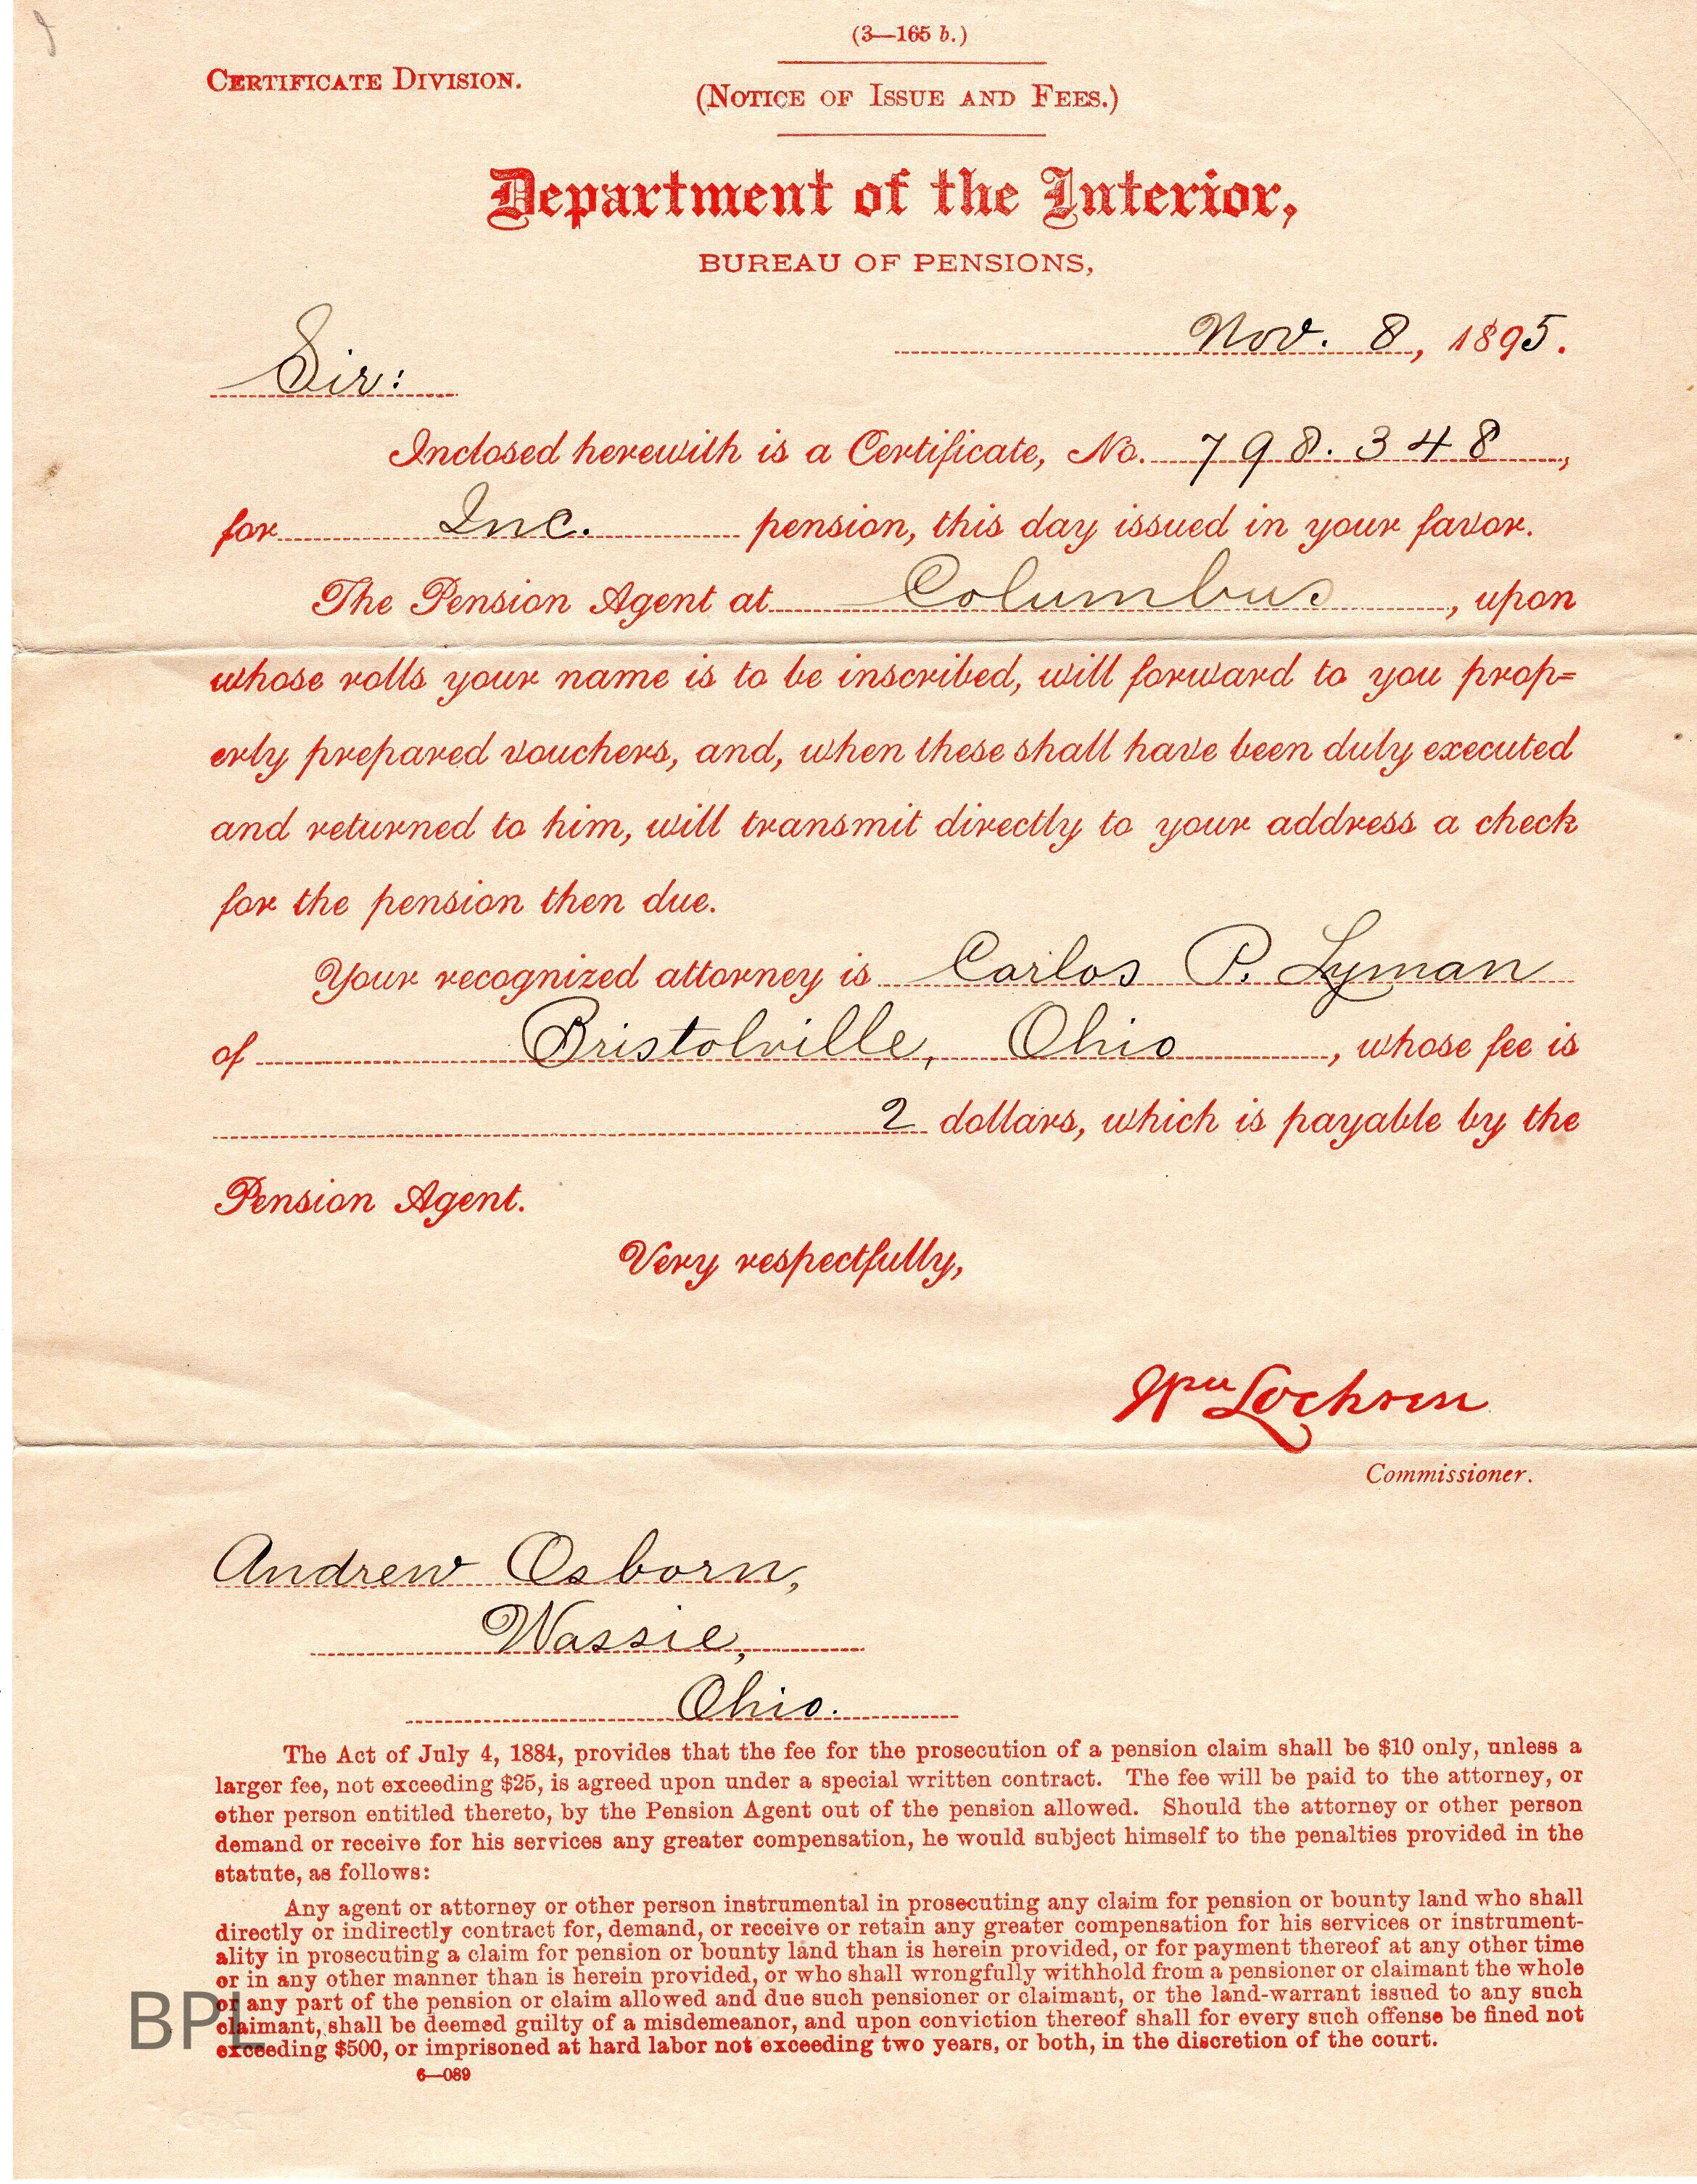 (3—165 b.)
CERTIFICATE DIVISION.
(NOTICE OF ISSUE AND FEES.)
Department of the Interior,
BUREAU OF PENSIONS,
Nov. 8, 1895.
Sir:
Inclosed herewith is a Certificate, No. 798.348,
for Inc. pension, this day issued in your favor.
The Pension Agent at Columbus, upon
whose rolls your name is to be inscribed, will forward to you prop=
erly prepared vouchers, and, when these shall have been duly executed
and returned to him, will transmit directly to your address a check
for the pension then due.
Your recognized attorney is Carlos P. Lyman
of Bristolville, Ohio, whose fee is
2 dollars, which is payable by the
Pension Agent.
Very respectfully,
Wm Lochren
Commissioner.
Andrew Osborn,
Wassie,
Ohio.
The Act of July 4, 1884, provides that the fee for the prosecution of a pension claim shall be $10 only, unless a
larger fee, not exceeding $25, is agreed upon under a special written contract. The fee will be paid to the attorney, or
other person entitled thereto, by the Pension Agent out of the pension allowed. Should the attorney or other person
demand or receive for his services any greater compensation, he would subject himself to the penalties provided in the
statute, as follows:
Any agent or attorney or other person instrumental in prosecuting any claim for pension or bounty land who shall
directly or indirectly contract for, demand, or receive or retain any greater compensation for his services or instrument-
ality in prosecuting a claim for pension or bounty land than is herein provided, or for payment thereof at any other time
or in any other manner than is herein provided, or who shall wrongfully withhold from a pensioner or claimant the whole
or any part of the pension or claim allowed and due such pensioner or claimant, or the land-warrant issued to any such
claimant, shall be deemed guilty of a misdemeanor, and upon conviction thereof shall for every such offense be fined not
exceeding $500, or imprisoned at hard labor not exceeding two years, or both, in the discretion of the court.
6—089
BPL